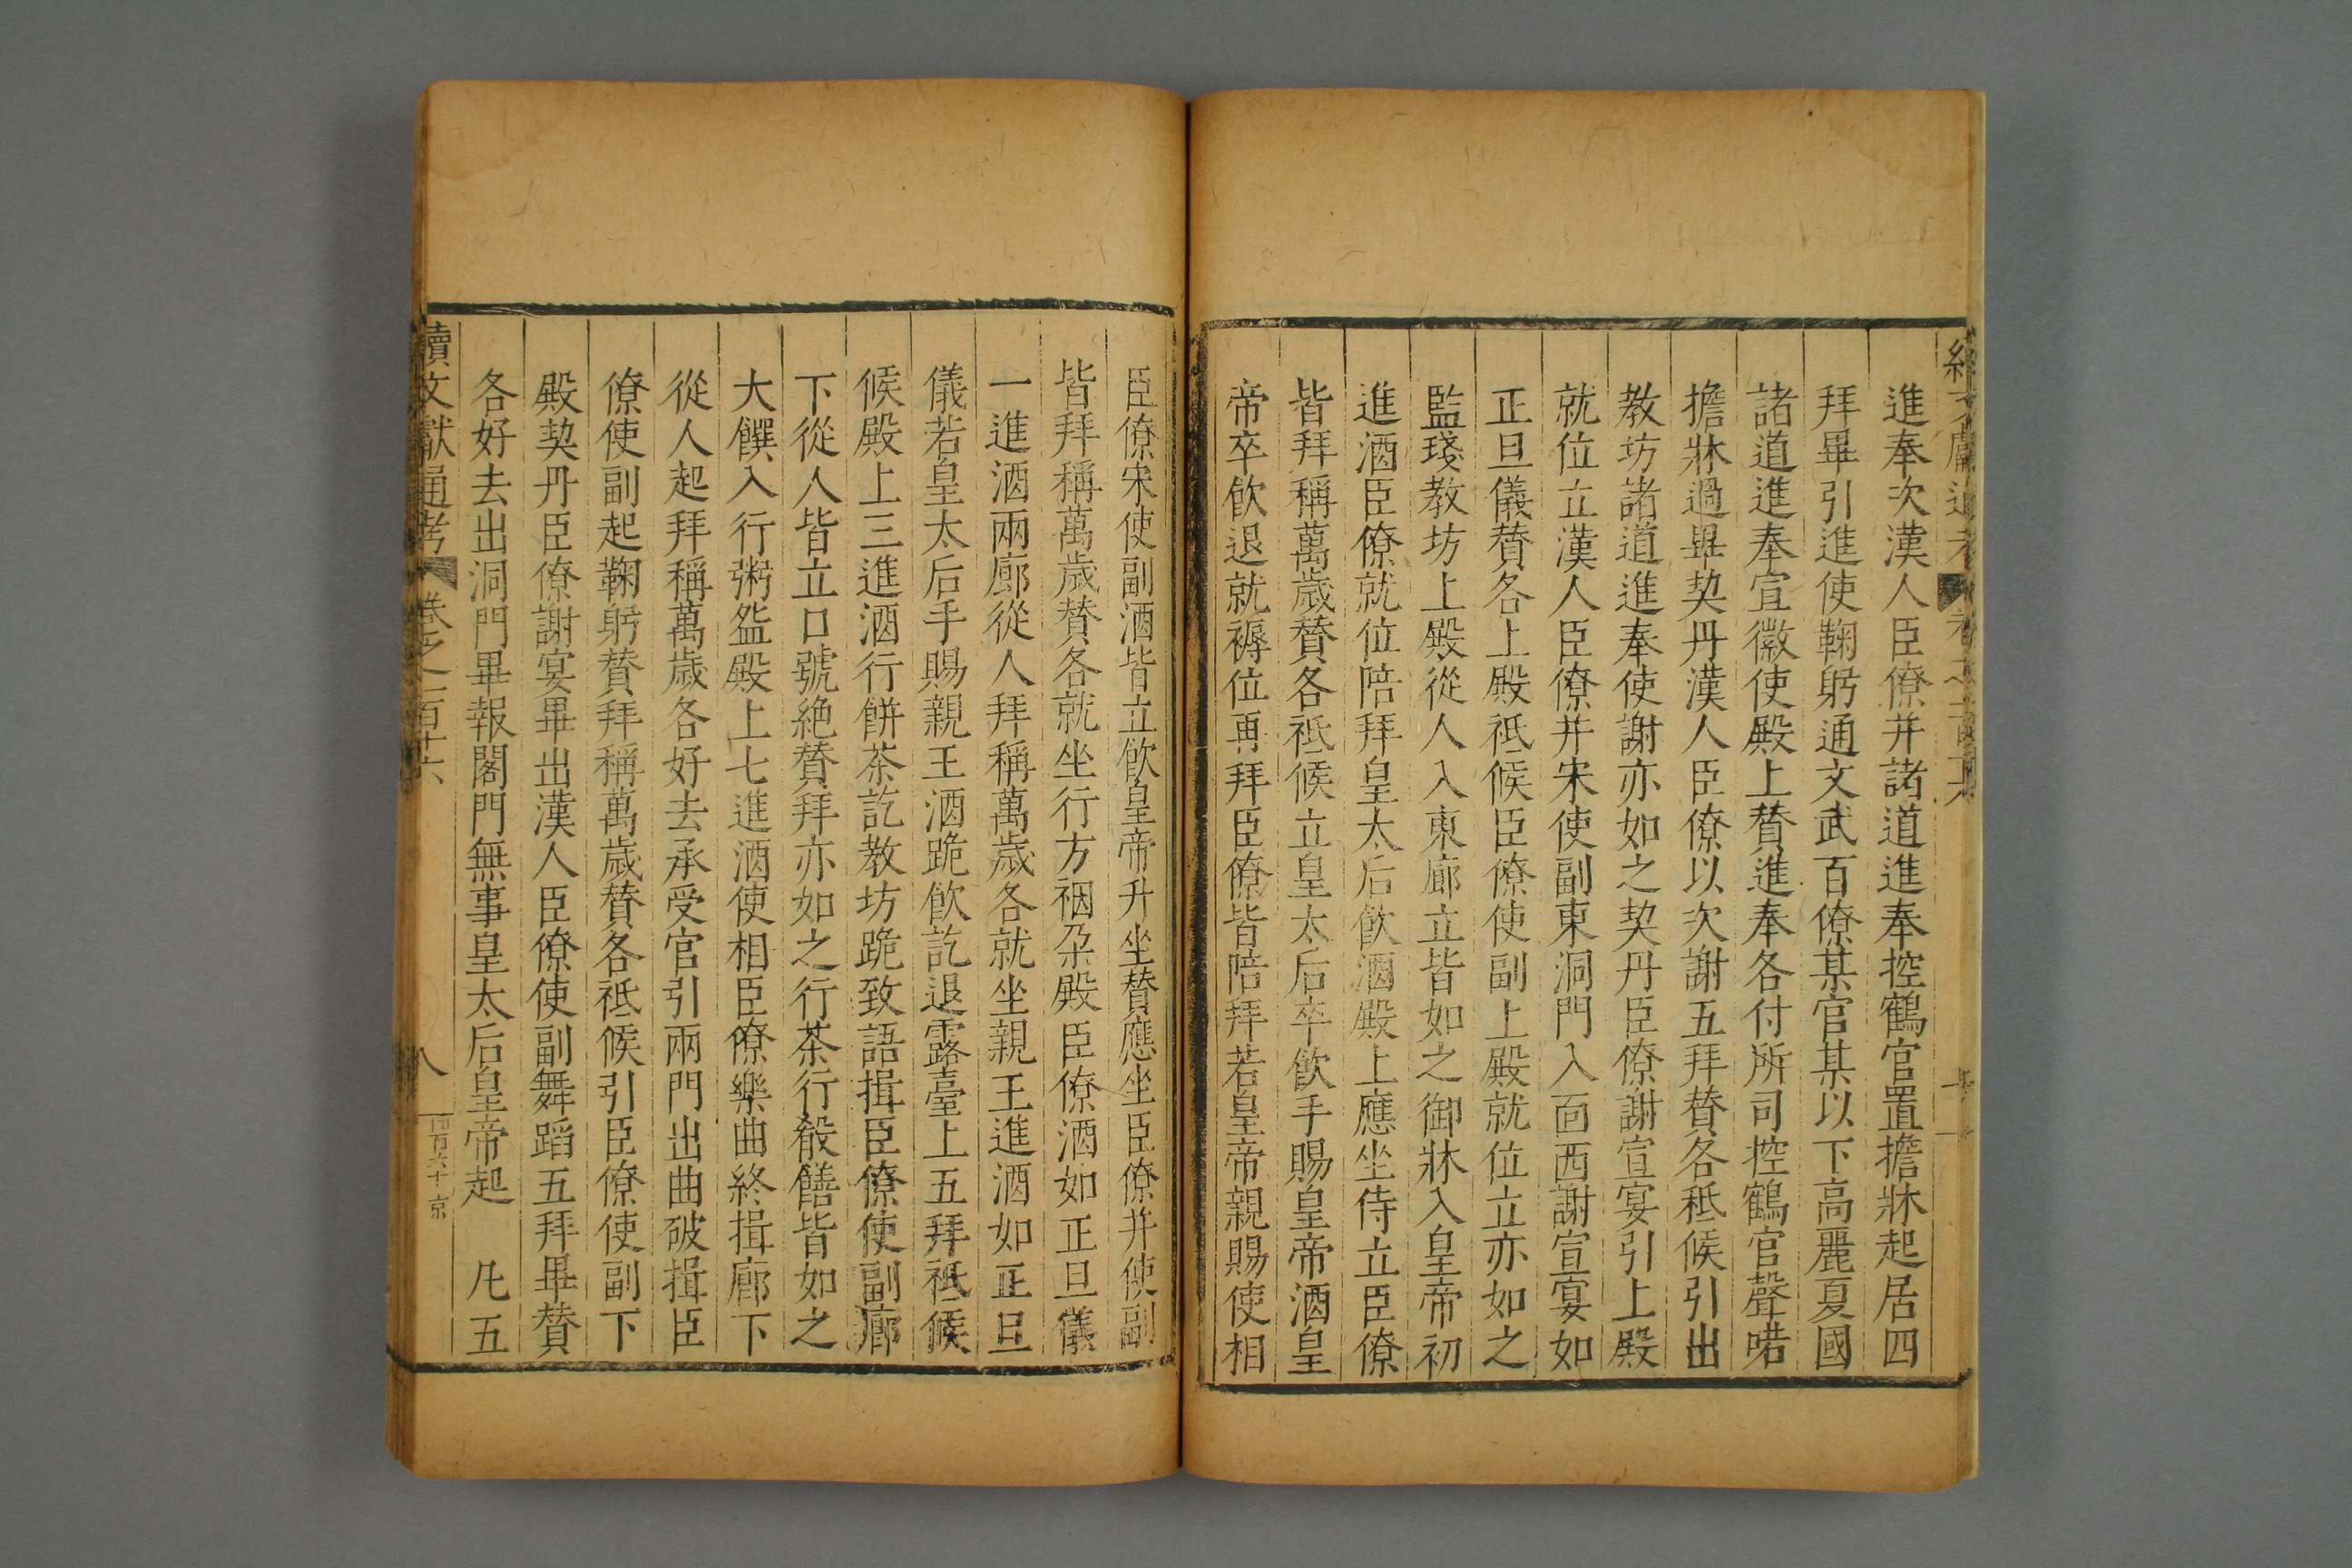 進奉次漢人臣僚并諸道進奉控鶴官置擔牀起居四
拜畢引進使鞠躬通文武百僚某官某以下高麗夏國
諸道進奉宣徽使殿上贊進奉各付所司控鶴官聲喏
擔牀過畢契丹漢人臣僚以次謝五拜贊各祗候引出
教坊諸道進奉使謝亦如之契丹臣僚謝宣宴引上殿
就位立漢人臣僚并宋使副東洞門入面西謝宣宴如
正旦儀贊各上殿祗候臣僚使副上殿就位立亦如之
監琖教坊上殿從人入東廊立皆如之御牀入皇帝初
進酒臣僚就位陪拜皇太后飲酒殿上應坐侍立臣僚
皆拜稱萬歲贊各祗候立皇太后卒飲手賜皇帝酒皇
帝卒飲退就褥位再拜臣僚皆陪拜若皇帝親賜使相
臣僚宋使副酒皆立飲皇帝升坐贊應坐臣僚并使副
皆拜稱萬歲贊各就坐行方裀朶殿臣僚酒如正旦儀
一進酒兩廊從人拜稱萬歲各就坐親王進酒如正旦
儀若皇太后手賜親王酒跪飲訖退露臺上五拜祗候
候殿上三進酒行餅茶訖教坊跪致語揖臣僚使副廊
下從人皆立口號絶贊拜亦如之行茶行殽饍皆如之
大饌入行粥盌殿上七進酒使相臣僚樂曲終揖廊下
從人起拜稱萬歲各好去承受官引兩門出曲破揖臣
僚使副起鞠躬贊拜稱萬歲贊各祗候引臣僚使副下
殿契丹臣僚謝宴畢出漢人臣僚使副舞蹈五拜畢贊
各好去出洞門畢報閣門無事皇太后皇帝起 凡五
續文獻通考 卷之一百十六 八